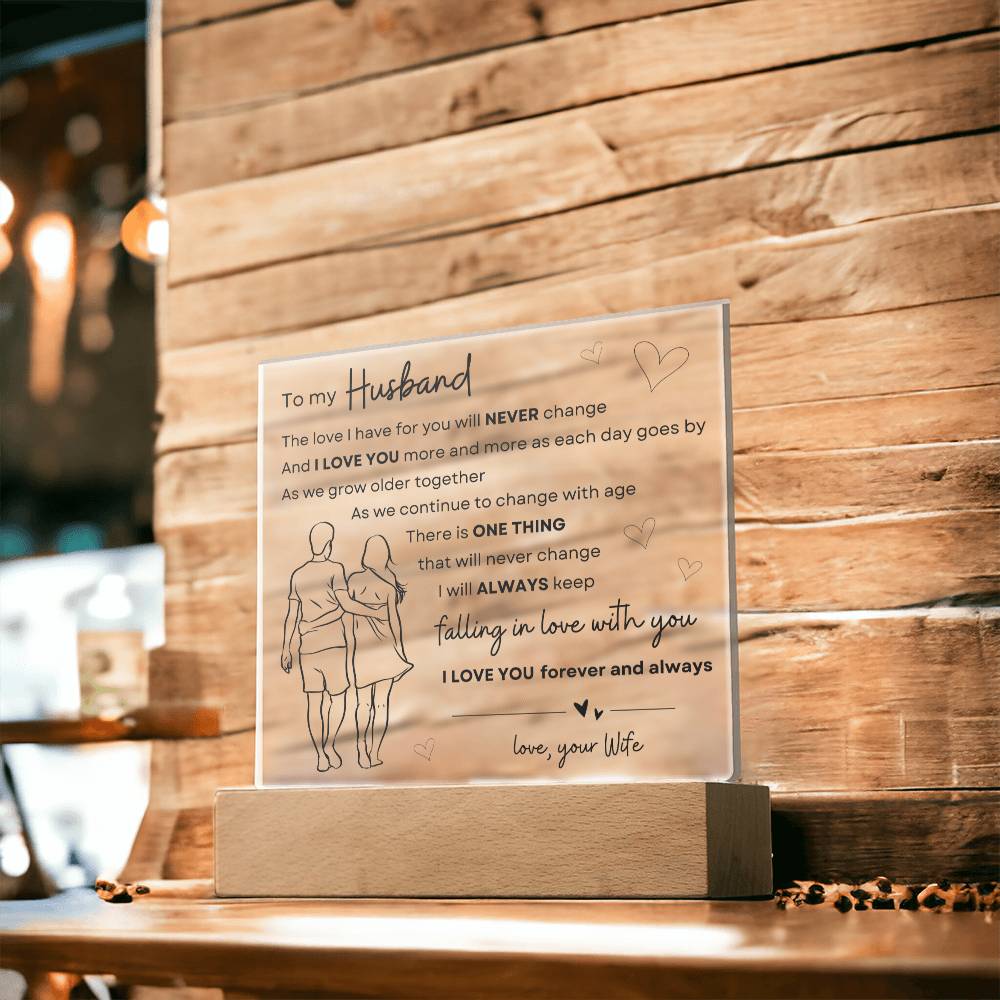 To my Husband
The love I have for you will NEVER change
And I LOVE YOU more and more as each day goes by
As we grow older together
As we continue to change with age
There is ONE THING
that will never change
I will ALWAYS keep
falling in love with you
I LOVE YOU forever and always
love, your Wife